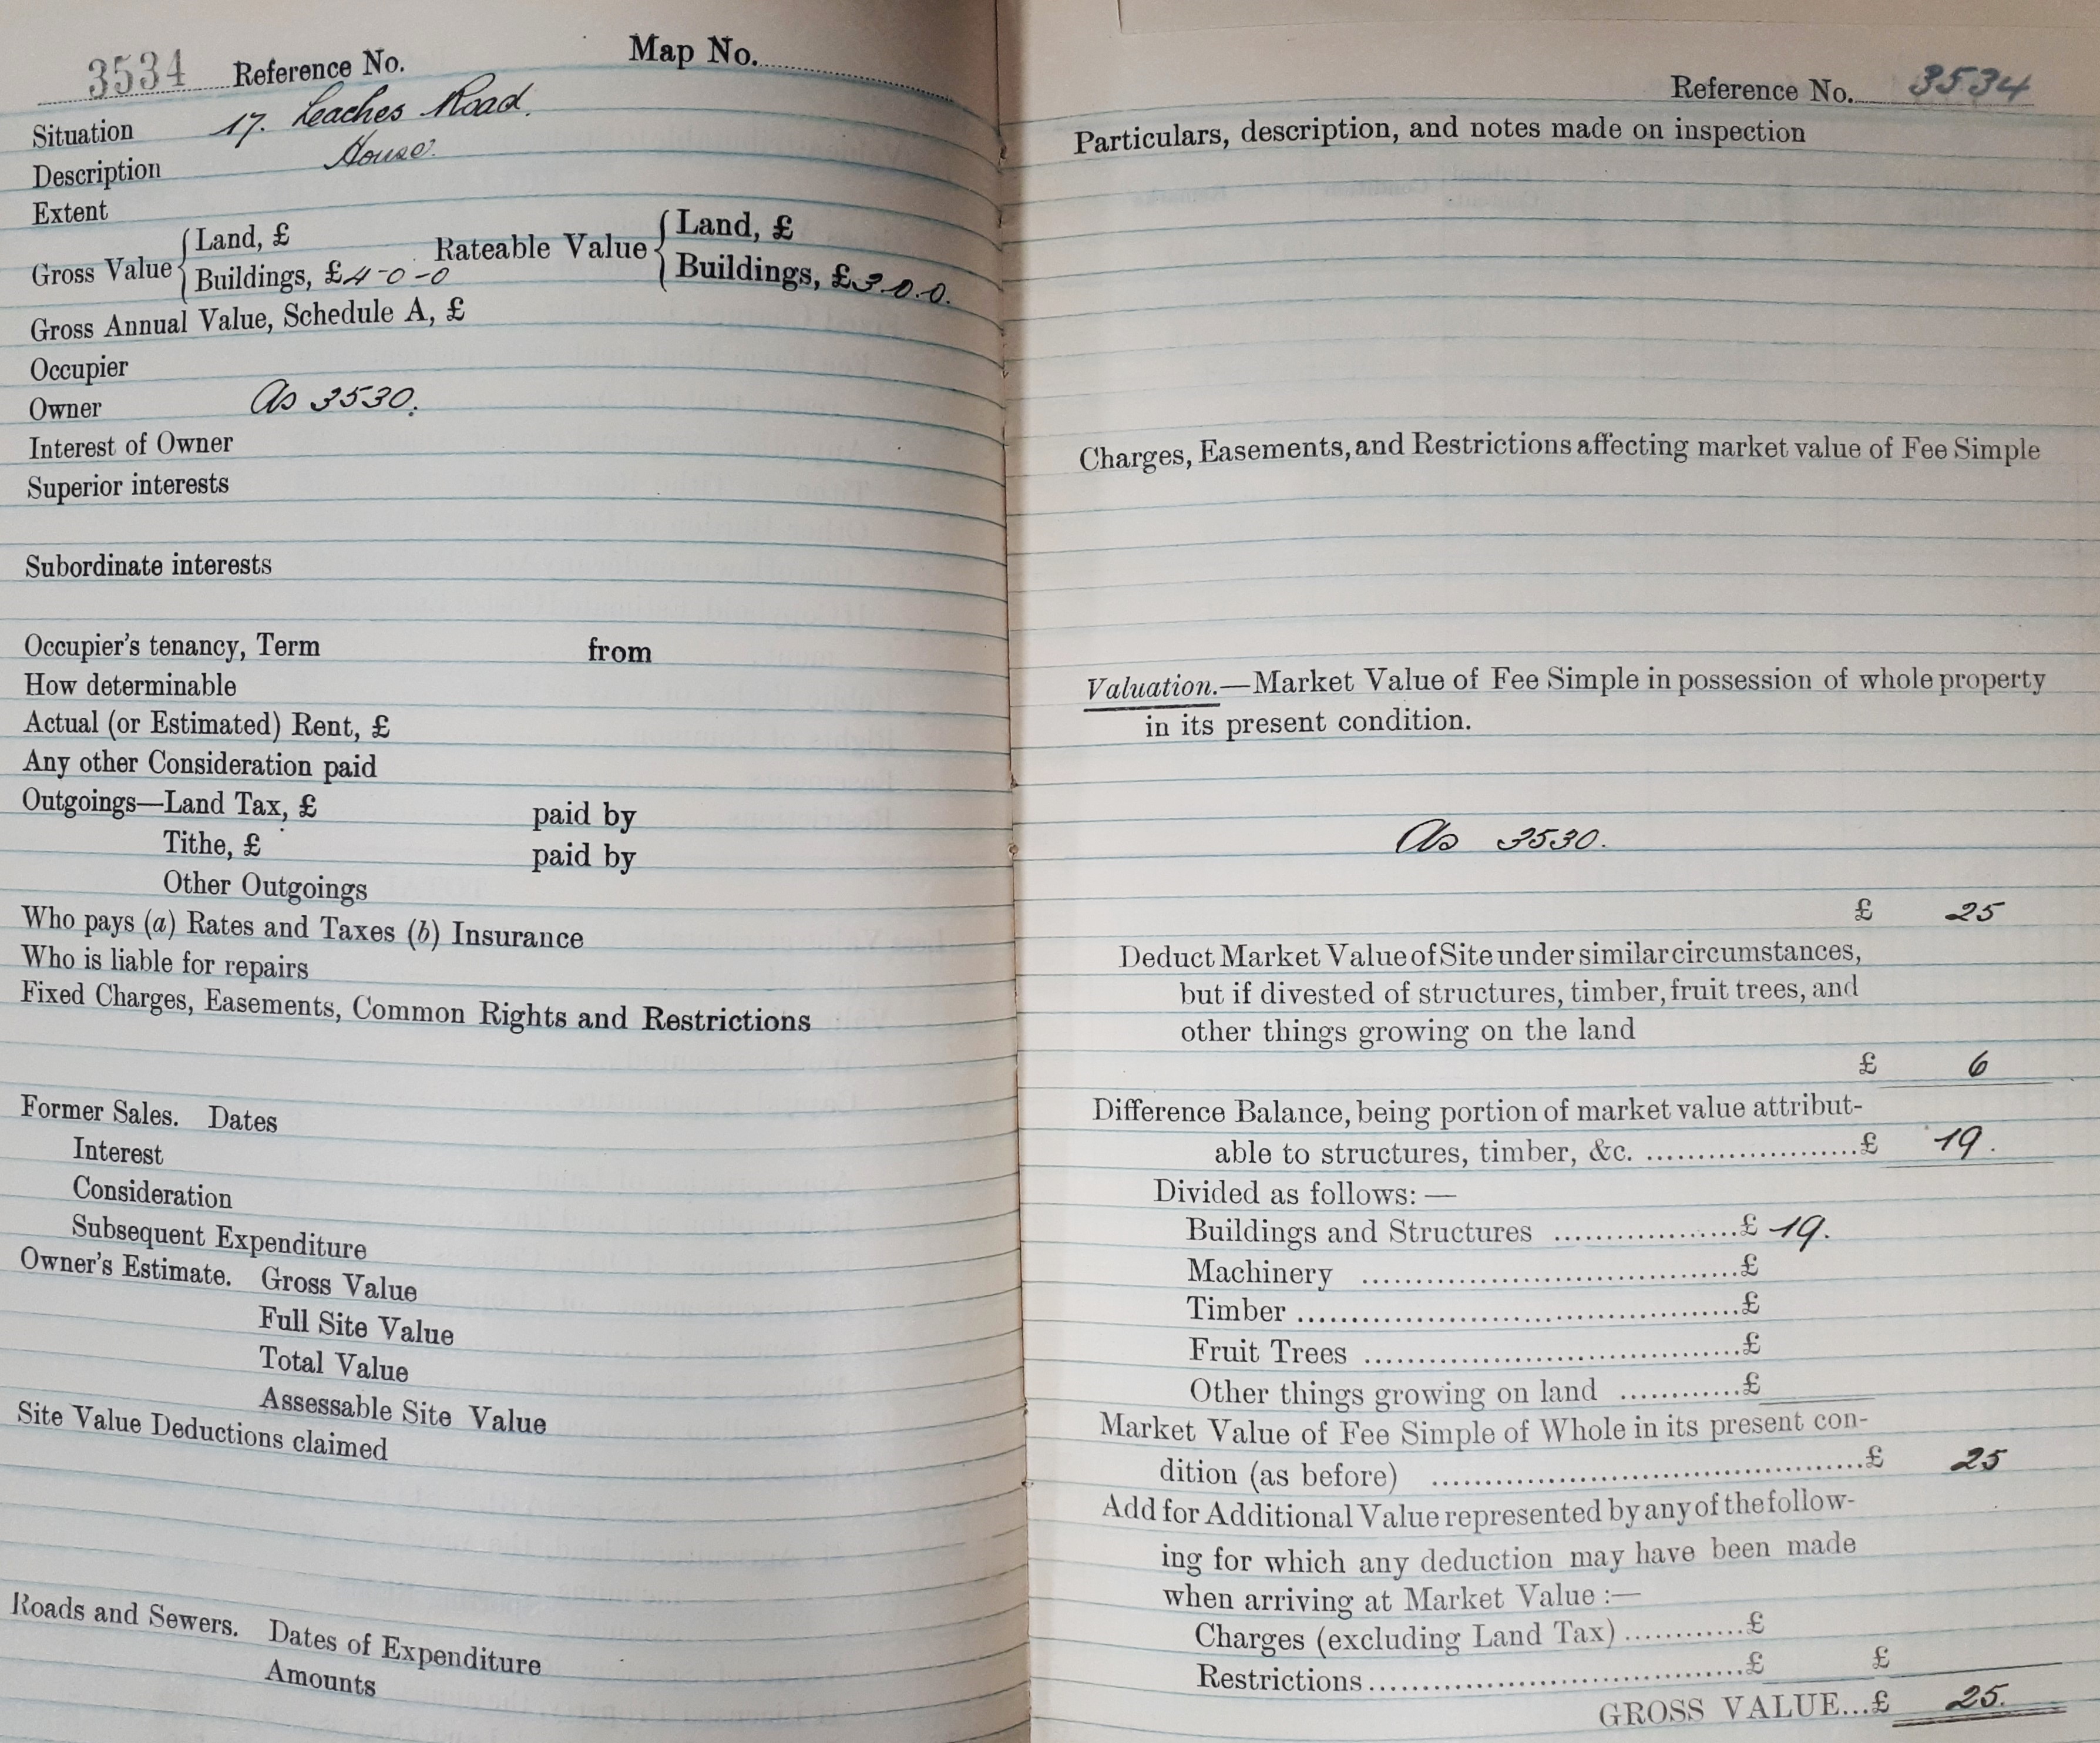 3534 Reference No. Map No.
Situation 17. Leaches Road.
Description House.
Extent
Gross Value { Land, £ Rateable Value { Land, £
Buildings, £4-0-0 Buildings, £3.0.0.
Gross Annual Value, Schedule A, £
Occupier
Owner As 3530.
Interest of Owner
Superior interests
Subordinate interests
Occupier's tenancy, Term from
How determinable
Actual (or Estimated) Rent, £
Any other Consideration paid
Outgoings—Land Tax, £ paid by
Tithe, £ paid by
Other Outgoings
Who pays (a) Rates and Taxes (b) Insurance
Who is liable for repairs
Fixed Charges, Easements, Common Rights and Restrictions
Former Sales. Dates
Interest
Consideration
Subsequent Expenditure
Owner's Estimate. Gross Value
Full Site Value
Total Value
Assessable Site Value
Site Value Deductions claimed
Roads and Sewers. Dates of Expenditure
Amounts
Reference No. 3534
Particulars, description, and notes made on inspection
Charges, Easements, and Restrictions affecting market value of Fee Simple
Valuation.—Market Value of Fee Simple in possession of whole property
in its present condition.
As 3530.
£ 25
Deduct Market Value of Site under similar circumstances,
but if divested of structures, timber, fruit trees, and
other things growing on the land
£ 6
Difference Balance, being portion of market value attribut-
able to structures, timber, &c. ....................£ 19.
Divided as follows:—
Buildings and Structures ..................£ 19.
Machinery ....................................£
Timber ..........................................£
Fruit Trees ....................................£
Other things growing on land ............£
Market Value of Fee Simple of Whole in its present con-
dition (as before) ..........................................£ 25
Add for Additional Value represented by any of the follow-
ing for which any deduction may have been made
when arriving at Market Value :—
Charges (excluding Land Tax) ............£
Restrictions....................................£ £
GROSS VALUE...£ 25.